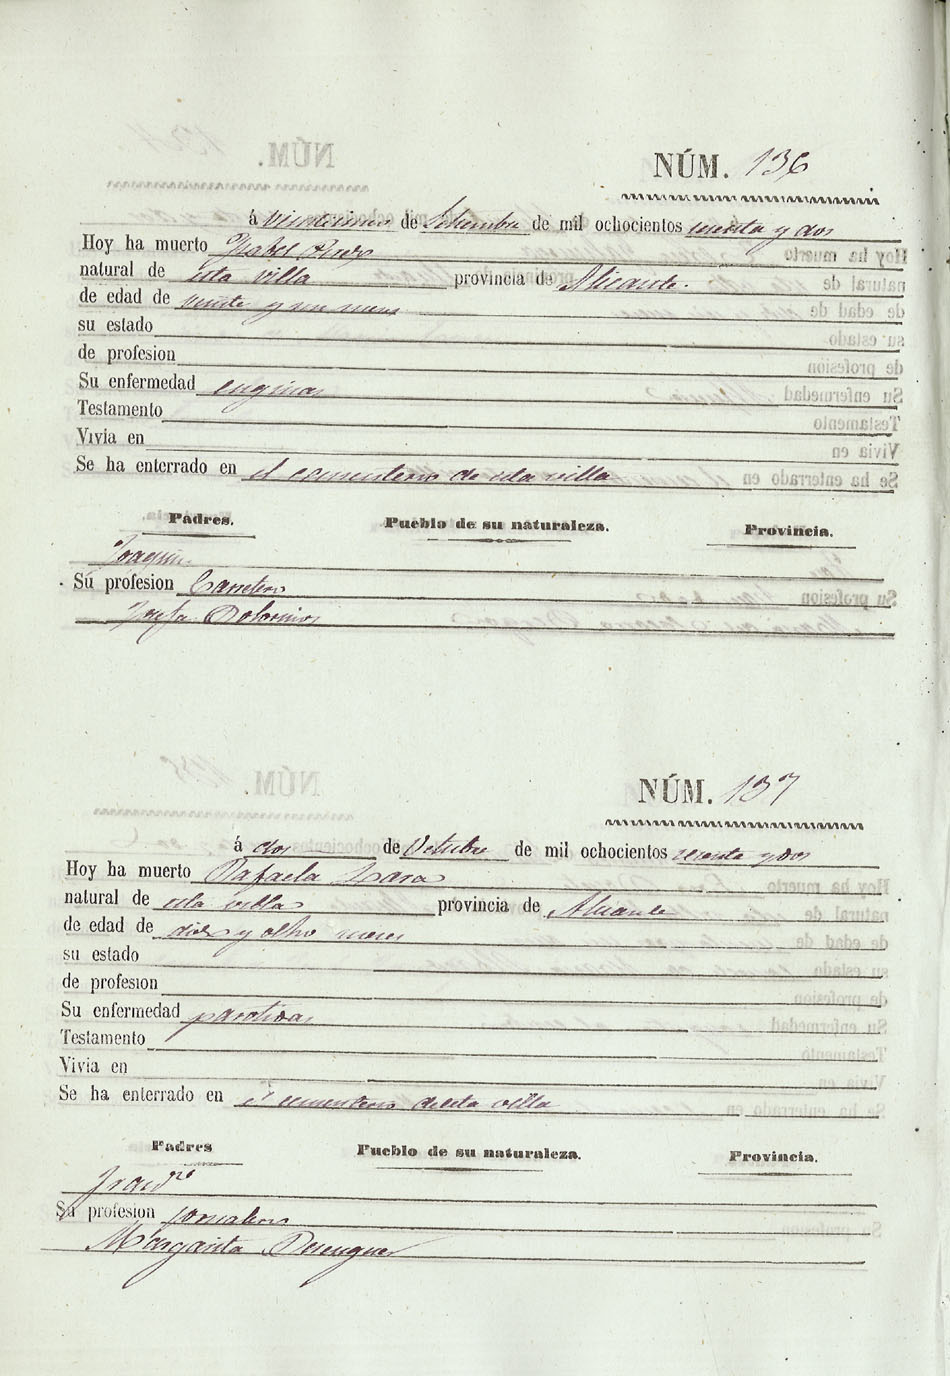 NÚM. 136
á de Setiembre de mil ochocientos sesenta y dos
Hoy ha muerto Ysabel Perez
natural de esta villa provincia de Alicante.
de edad de veinte y un meses
su estado
de profesion
Su enfermedad anginas
Testamento
Vivia en
Se ha enterrado en el cementerio de esta villa
Padres. Pueblo de su naturaleza. Provincia.
Joaquin
Su profesion Carretero
Josefa
NÚM. 137
á dos de Octubre de mil ochocientos sesenta y dos
Hoy ha muerto Rafaela Lara
natural de esta villa provincia de Alicante
de edad de diez y ocho meses
su estado
de profesion
Su enfermedad parotidas
Testamento
Vivia en
Se ha enterrado en el cementerio de esta villa
Padres Pueblo de su naturaleza. Provincia.
Su profesion jornalero
Margarita Berenguer